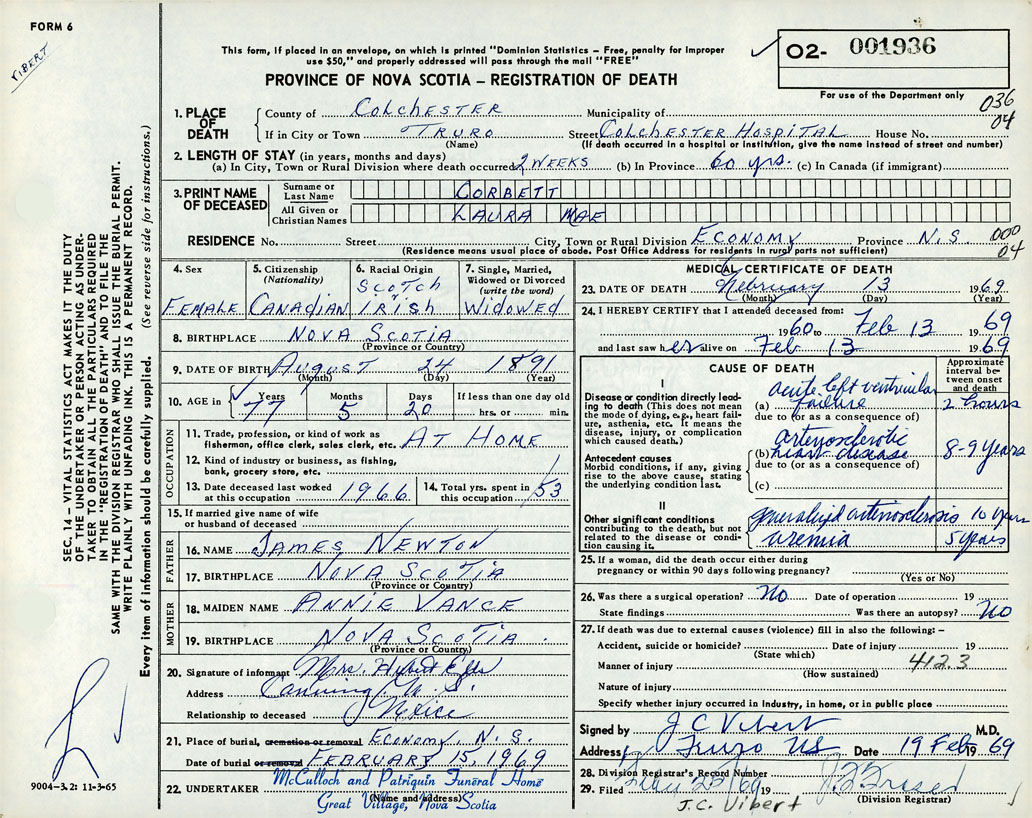 FORM 6
VIBERT
This form, if placed in an envelope, on which is printed "Dominion Statistics – Free, penalty for improper
use $50," and properly addressed will pass through the mail "FREE"
PROVINCE OF NOVA SCOTIA – REGISTRATION OF DEATH
02- 001936
For use of the Department only
036
04
SEC. 14 – VITAL STATISTICS ACT MAKES IT THE DUTY
OF THE UNDERTAKER OR PERSON ACTING AS UNDER-
TAKER TO OBTAIN ALL THE PARTICULARS REQUIRED
IN THE "REGISTRATION OF DEATH" AND TO FILE THE
SAME WITH THE DIVISION REGISTRAR WHO SHALL ISSUE THE BURIAL PERMIT.
WRITE PLAINLY WITH UNFADING INK. THIS IS A PERMANENT RECORD.
Every item of information should be carefully supplied. (See reverse side for instructions.)
1. PLACE OF DEATH
County of Colchester Municipality of
If in City or Town Truro Street Colchester Hospital House No.
(Name) (If death occurred in a hospital or institution, give the name instead of street and number)
2. LENGTH OF STAY (in years, months and days)
(a) In City, Town or Rural Division where death occurred 2 weeks (b) In Province 60 yrs. (c) In Canada (if immigrant)
3. PRINT NAME OF DECEASED
Surname or Last Name CORBETT
All Given or Christian Names LAURA MAE
RESIDENCE No. Street City, Town or Rural Division Economy Province N.S 000
04
(Residence means usual place of abode. Post Office Address for residents in rural parts not sufficient)
4. Sex Female
5. Citizenship (Nationality) Canadian
6. Racial Origin Scotch Irish
7. Single, Married, Widowed or Divorced (write the word) Widowed
8. BIRTHPLACE Nova Scotia
(Province or Country)
9. DATE OF BIRTH August 24 1891
(Month) (Day) (Year)
10. AGE in Years 77 Months 5 Days 20 If less than one day old hrs. or min.
OCCUPATION
11. Trade, profession, or kind of work as fisherman, office clerk, sales clerk, etc. At Home
12. Kind of industry or business, as fishing, bank, grocery store, etc.
13. Date deceased last worked at this occupation 1966
14. Total yrs. spent in this occupation 53
15. If married give name of wife or husband of deceased
FATHER
16. NAME James Newton
17. BIRTHPLACE Nova Scotia
(Province or Country)
MOTHER
18. MAIDEN NAME Annie Vance
19. BIRTHPLACE Nova Scotia.
(Province or Country)
20. Signature of informant Mrs. Hubert
Address Canning, N.S.
Relationship to deceased
21. Place of burial, cremation or removal Economy, N.S.
Date of burial or removal February 15, 1969
22. UNDERTAKER McCulloch and Patriquin Funeral Home
(Name and address)
Great Village, Nova Scotia
9004-3.2: 11-3-65
MEDICAL CERTIFICATE OF DEATH
23. DATE OF DEATH February 13 1969
(Month) (Day) (Year)
24. I HEREBY CERTIFY that I attended deceased from:
1960 to Feb 13 1969
and last saw her alive on Feb 13 1969
CAUSE OF DEATH
Approximate interval between onset and death
I
Disease or condition directly leading to death (This does not mean the mode of dying, e.g., heart failure, asthenia, etc. It means the disease, injury, or complication which caused death.)
(a) acute left ventricular failure 2 hours
due to (or as a consequence of)
Antecedent causes
Morbid conditions, if any, giving rise to the above cause, stating the underlying condition last.
(b) arteriosclerotic heart disease 8-9 years
due to (or as a consequence of)
(c)
II
Other significant conditions contributing to the death, but not related to the disease or condition causing it.
generalized arteriosclerosis 10 years
uremia 5 years
25. If a woman, did the death occur either during pregnancy or within 90 days following pregnancy?
(Yes or No)
26. Was there a surgical operation? No Date of operation 19
State findings Was there an autopsy? No
27. If death was due to external causes (violence) fill in also the following: –
Accident, suicide or homicide? Date of injury 19
(State which)
Manner of injury 412.3
(How sustained)
Nature of injury
Specify whether injury occurred in industry, in home, or in public place
Signed by J C Vibert M.D.
Address Truro NS Date 19 Feb. 1969
28. Division Registrar's Record Number
29. Filed 19
(Division Registrar)
J.C. Vibert